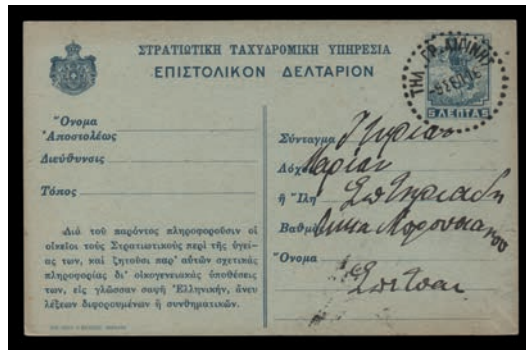 ΣΤΡΑΤΙΩΤΙΚΗ ΤΑΧΥΔΡΟΜΙΚΗ ΥΠΗΡΕΣΙΑ
ΕΠΙΣΤΟΛΙΚΟΝ ΔΕΛΤΑΡΙΟΝ
ΤΗΛ ΓΡ. ΑΙΓΙΝΗΣ
5 ΛΕΠΤΑ 5
Ὄνομα
Ἀποστολέως
Διεύθυνσις
Τόπος
Διὰ τοῦ παρόντος πληροφοροῦσιν οἱ
οἰκεῖοι τοὺς Στρατιωτικοὺς περὶ τῆς ὑγεί-
ας των, καὶ ζητοῦσι παρ' αὐτῶν σχετικὰς
πληροφορίας δι' οἰκογενειακὰς ὑποθέσεις
των, εἰς γλῶσσαν σαφῆ Ἑλληνικήν, ἄνευ
λέξεων διφορουμένων ἢ συνθηματικῶν.
Σύνταγμα
Λόχος Μαρίαν
ἢ Ἴλη Σωτηριάδη
Βαθμὸς
Ὄνομα
Σπέτσαι